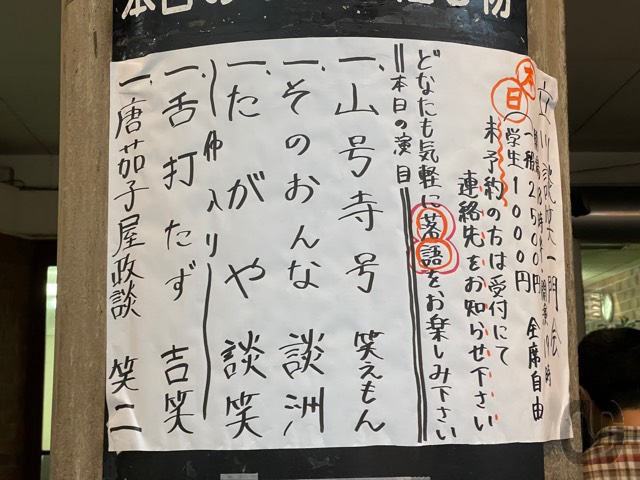 本日
立川談笑一門会
一般2500円 全席自由
学生1000円
未予約の方は受付にて
連絡先をお知らせ下さい
どなたも気軽に落語をお楽しみ下さい
本日の演目
一、山号寺号 笑えもん
一、そのおんな 談洲
一、たがや 談笑
仲入り
一、舌打たず 吉笑
一、唐茄子屋政談 笑二